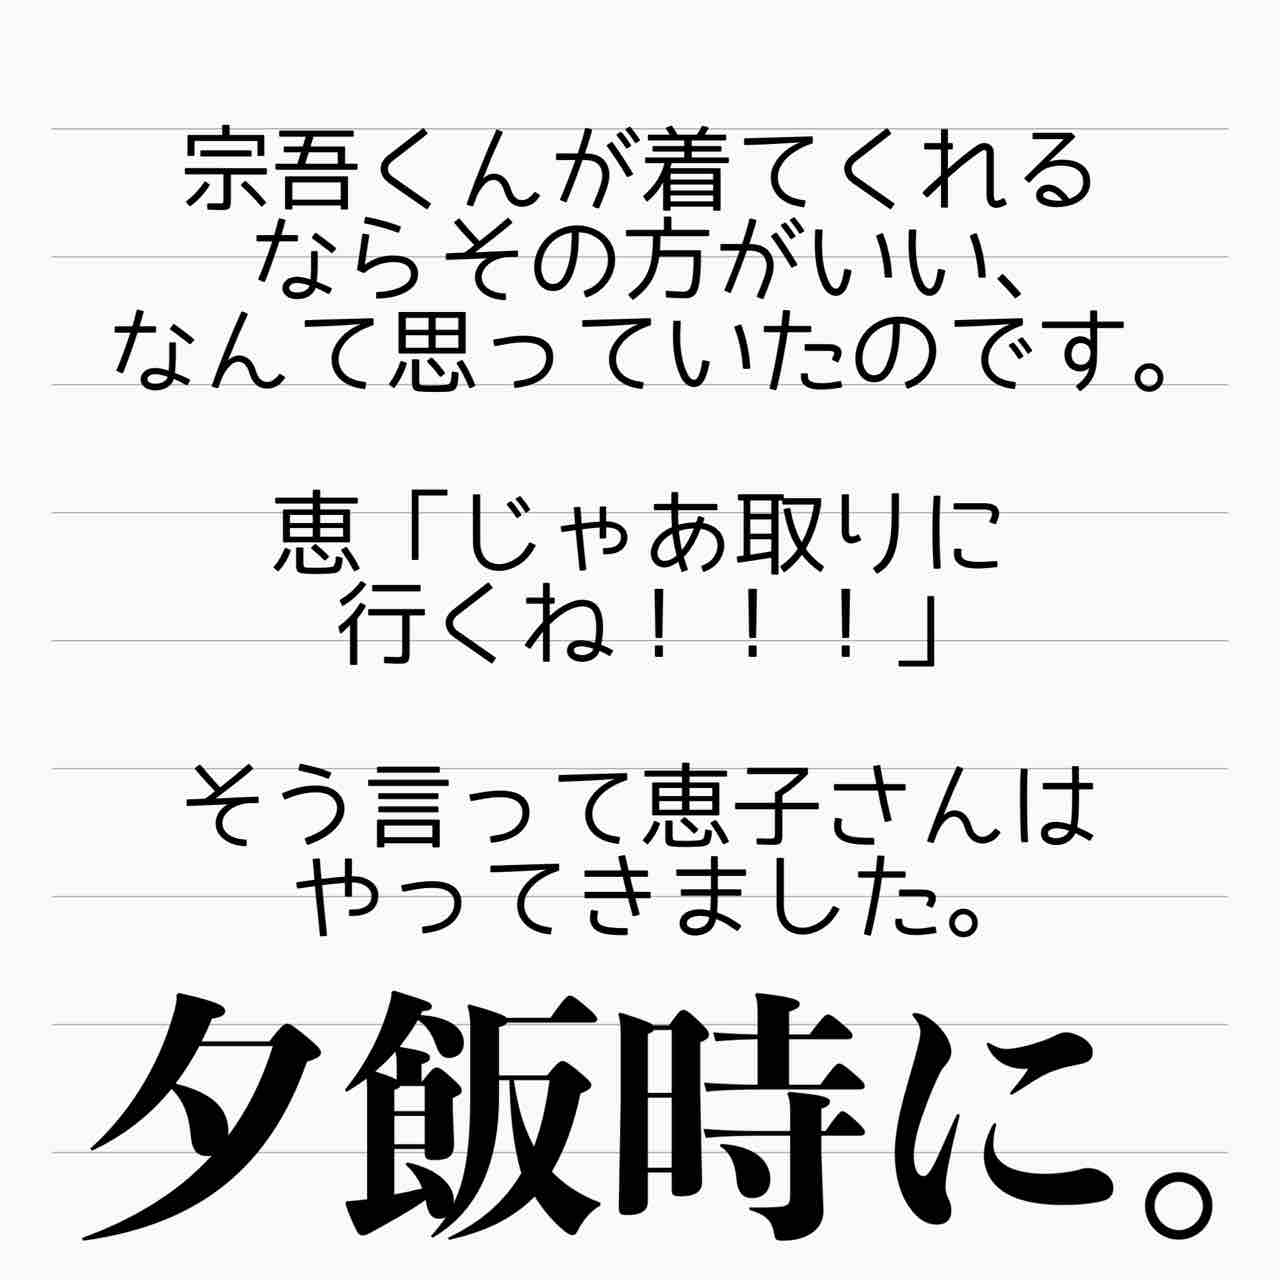 宗吾くんが着てくれる
ならその方がいい、
なんて思っていたのです。
恵「じゃあ取りに
行くね！！！」
そう言って恵子さんは
やってきました。
夕飯時に。